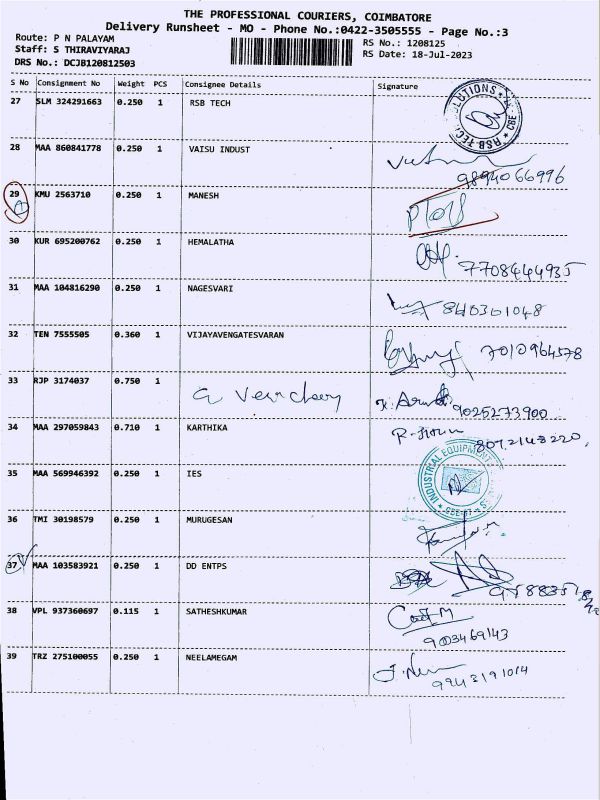 THE PROFESSIONAL COURIERS, COIMBATORE
Delivery Runsheet - MO - Phone No.:0422-3505555 - Page No.:3
Route: P N PALAYAM
Staff: S THIRAVIYARAJ
DRS No.: DCJB120812503
RS No.: 1208125
RS Date: 18-Jul-2023
S No Consignment No Weight PCS Consignee Details Signature
27 SLM 324291663 0.250 1 RSB TECH
28 MAA 860841778 0.250 1 VAISU INDUST
9894066996
29 KMU 2563710 0.250 1 MANESH
30 KUR 695200762 0.250 1 HEMALATHA
7708444935
31 MAA 104816290 0.250 1 NAGESVARI
32 TEN 7555505 0.360 1 VIJAYAVENGATESVARAN
7010964578
33 RJP 3174037 0.750 1
9025273900
34 MAA 297059843 0.710 1 KARTHIKA
35 MAA 569946392 0.250 1 IES
INDUSTRIAL EQUIPMENT
36 TMI 30198579 0.250 1 MURUGESAN
37 MAA 103583921 0.250 1 DD ENTPS
38 VPL 937360697 0.115 1 SATHESHKUMAR
9003469143
39 TRZ 275100055 0.250 1 NEELAMEGAM
9943191014